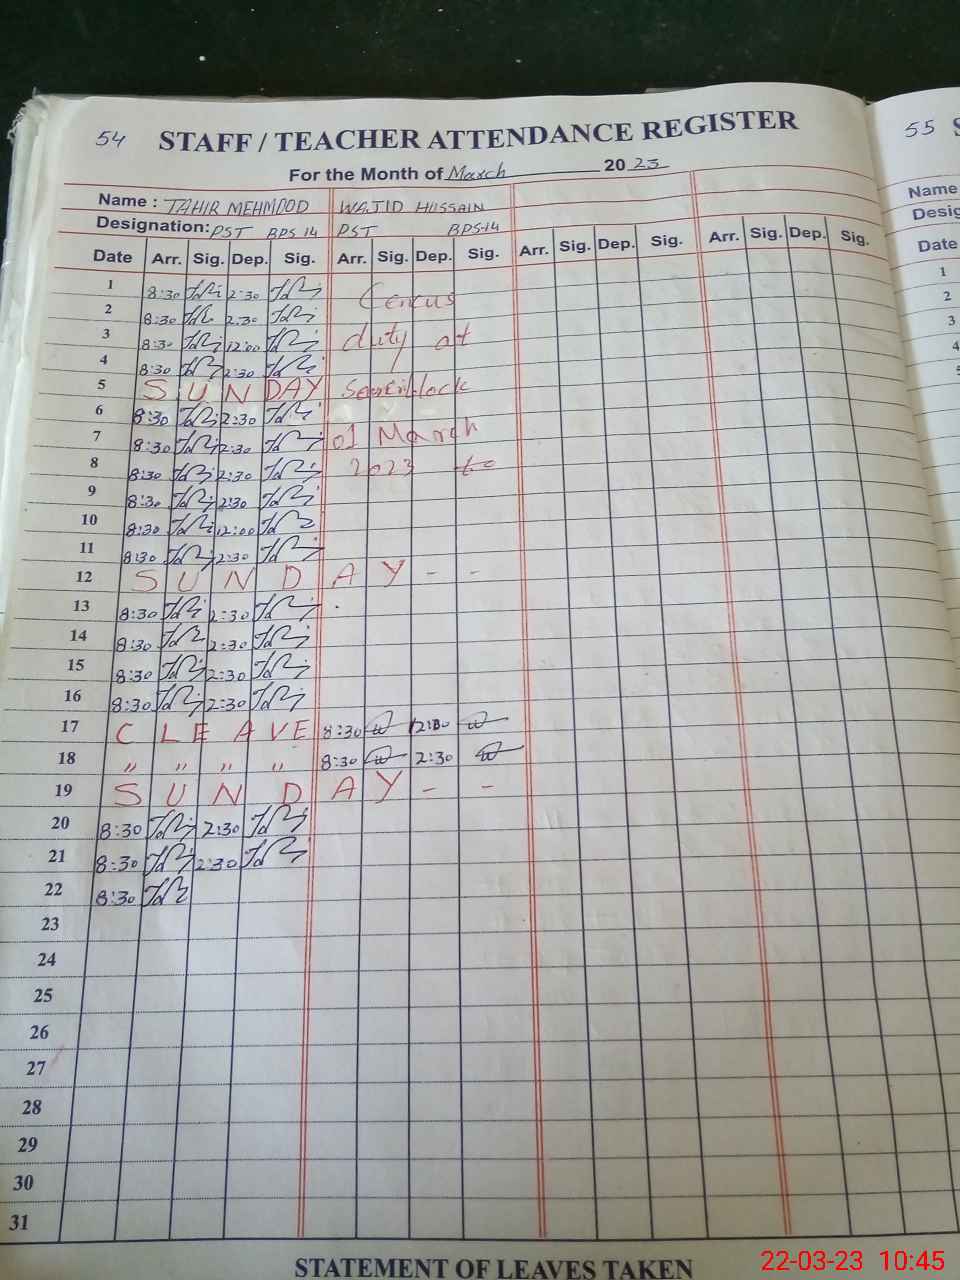 54 STAFF / TEACHER ATTENDANCE REGISTER 55 S
For the Month of March 2023
Name : TAHIR MEHMOOD WAJID HUSSAIN Name
Designation: PST BPS 14 PST BPS-14 Desig
Date Arr. Sig. Dep. Sig. Arr. Sig. Dep. Sig. Arr. Sig. Dep. Sig. Arr. Sig. Dep. Sig. Date
1 8:30 2:30 Cencus 1
2 8:30 2:30 2
3 8:30 12:00 duty at 3
4 8:30 2:30 4
5 SUNDAY 5
6 8:30 2:30
7 8:30 2:30 01 March
8 8:30 2:30 2023 to
9 8:30 2:30
10 8:30 12:00
11 8:30 2:30
12 SUNDAY - -
13 8:30 2:30
14 8:30 2:30
15 8:30 2:30
16 8:30 2:30
17 C LEAVE 8:30
18 " " " " 8:30 2:30
19 SUNDAY - -
20 8:30 2:30
21 8:30 2:30
22 8:30
23
24
25
26
27
28
29
30
31
STATEMENT OF LEAVES TAKEN
22-03-23 10:45